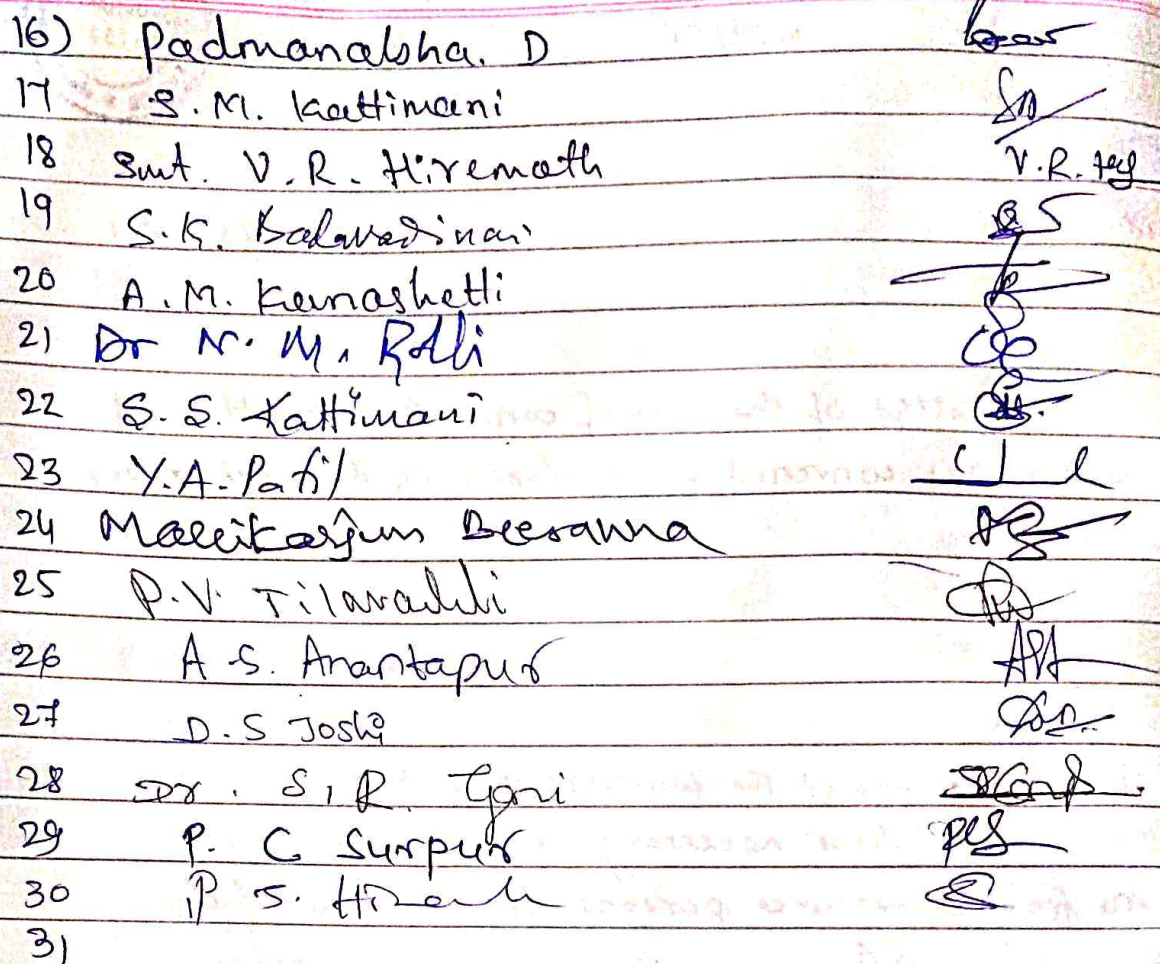 16) Padmanabha. D
17 S. M. Kattimani
18 Smt. V. R. Hiremath V.R.
19 S.K.
20 A. M. Kunashetti
21 Dr N. M.
22 S. S. Kattimani
23 Y. A. Patil
24 Mallikarjun Beeranna
25 P. V. Tilavalli
26 A S. Anantapur
27 D. S Joshi
28 Dr. S. R. Goni
29 P. C Surpur PCS
30 P S.
31